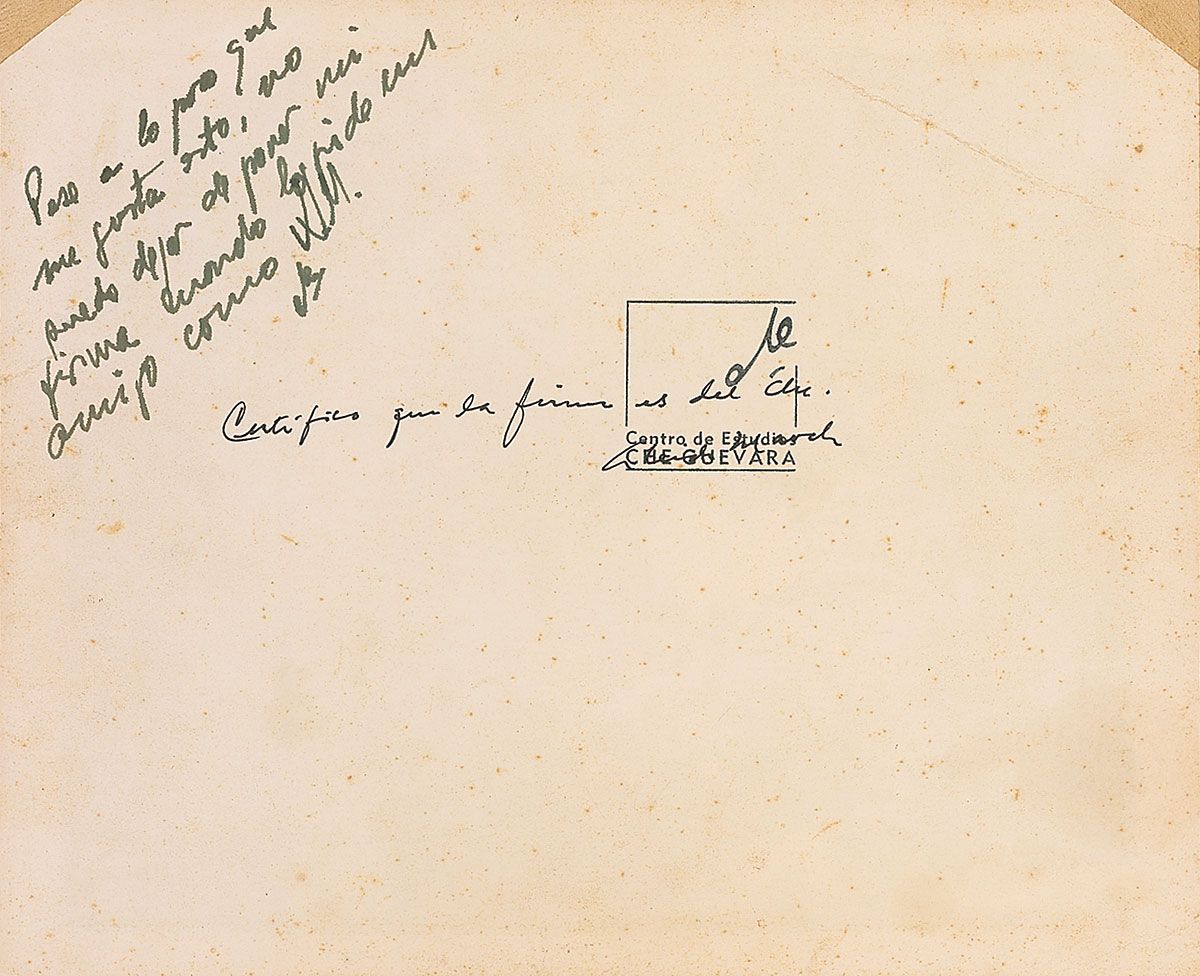 Pese a lo poco que
me gusta esto, no
puedo dejar de poner mi
firma cuando lo pide un
amigo como
Che
Certifico que la firma es del Che.
Aleida March
Centro de Estudios
CHE GUEVARA